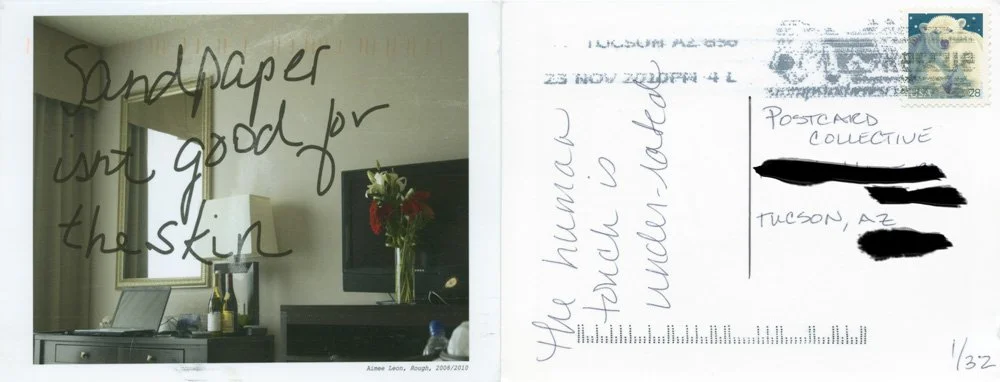 Sandpaper
isnt good for
the skin
Aimee Leon, Rough, 2008/2010
TUCSON AZ 856
23 NOV 2010 PM 4 L
28
The human
touch is
under-rated
POSTCARD
COLLECTIVE
TUCSON, AZ
1/32